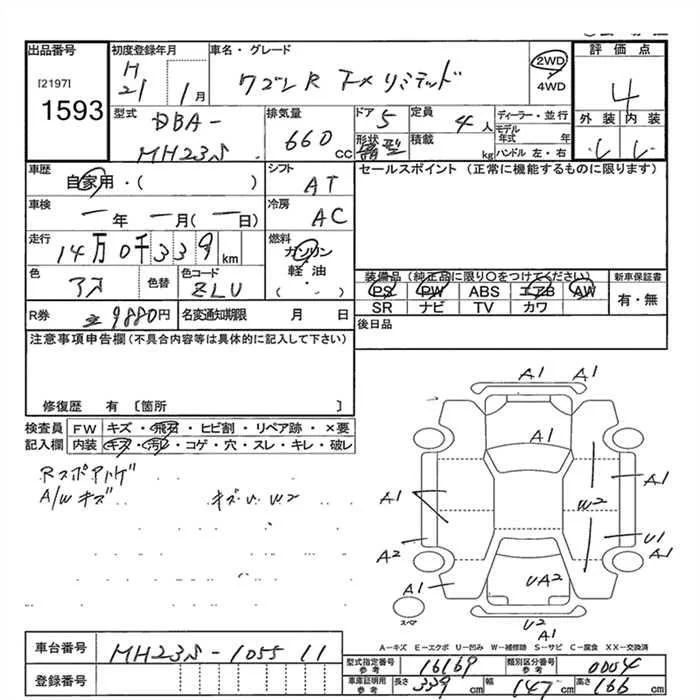 出品番号
[2197]
1593
初度登録年月
H
21 1月
車名・グレード
ワゴンR FXリミテッド
2WD
4WD
評価点
4
外装 内装
型式
DBA-
MH23S
排気量
660 CC
ドア
5
形状
箱型
定員
4人
積載
kg
ディーラー・並行
モデル
年式 年
ハンドル 左・右
車歴
自家用・( )
シフト
AT
セールスポイント (正常に機能するものに限ります)
車検
一年 一月(一日)
冷房
AC
走行
14万0千339km
燃料
ガソリン
軽油
(・)
色
色替
色コード
ZLU
装備品(純正品に限り○をつけてください)
PS PW ABS エアB AW
SR ナビ TV カワ
新車保証書
有・無
R券
9880円
名変通知期限 月 日
後日品
注意事項申告欄(不具合内容等は具体的に記入して下さい)
修復歴 有〔箇所 〕
検査員
記入欄
FW キズ・飛石・ヒビ割・リペア跡・×要
内装 キズ・汚れ・コゲ・穴・スレ・キレ・破レ
A/Wキズ
W2
A1 A1
A1
A1
A1
W2
A2
U1
A1
A1
UA2
スペア
U2
A1
A-キズ E-エクボ U-凹み W-補修跡 S-サビ C-腐食 XX-交換済
車台番号
MH23S-105511
登録番号
型式指定番号
参考
16169
類別区分番号
参考
0004
車庫証明用
参考
長さ 339cm
幅 147cm
高さ 166cm